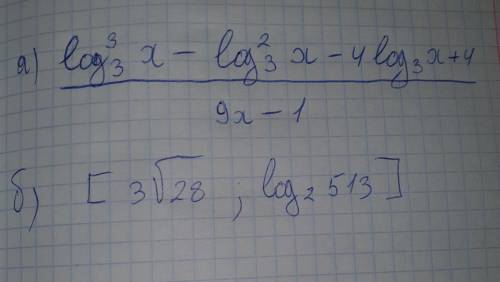 а) log₃³ x − log₃² x − 4 log₃ x + 4
9x − 1
б) [ 3√28 ; log₂ 513 ]